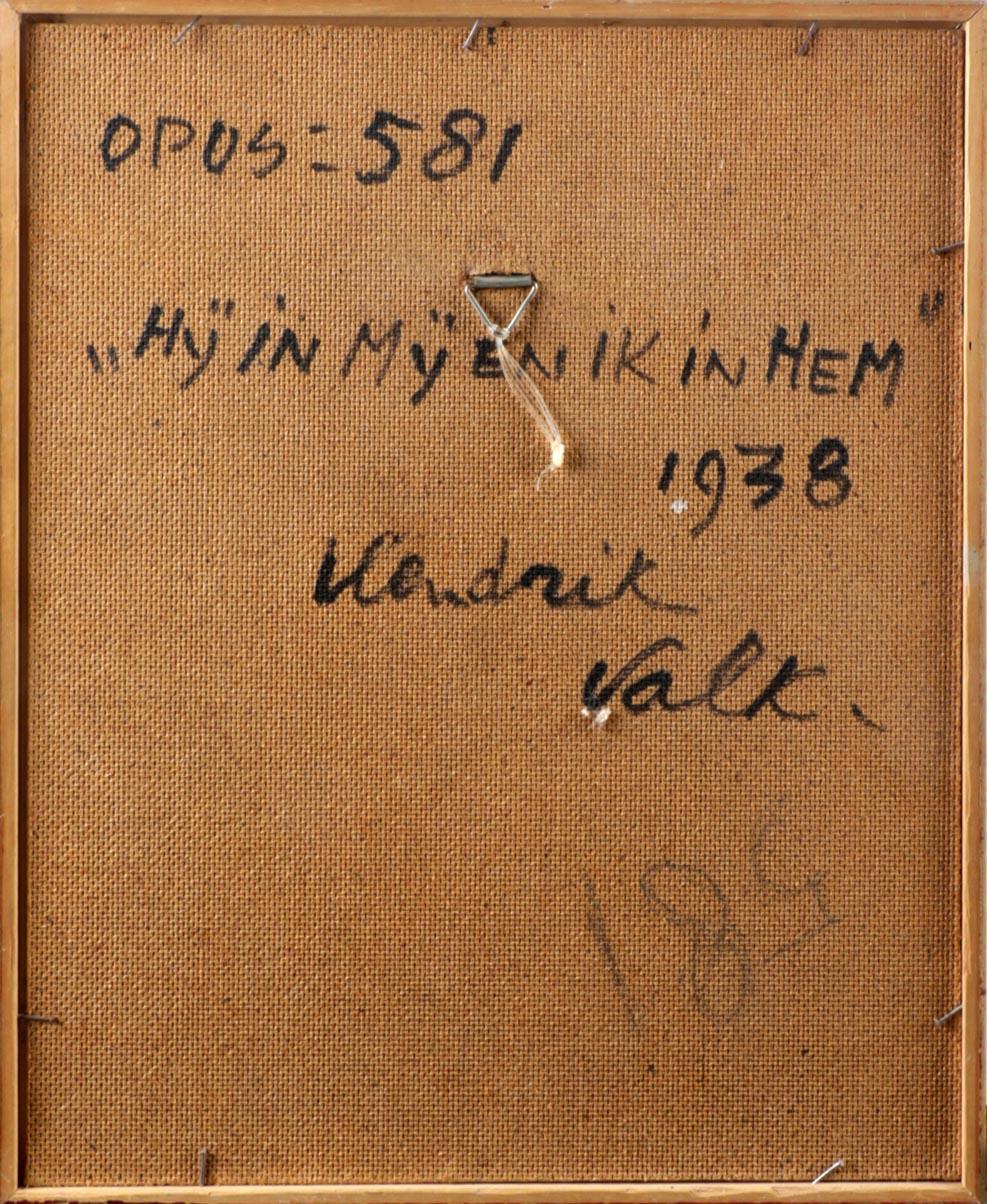 OPUS = 581
„HÿiN MÿEN iK iN HEM"
1938
Hendrik
Valk.